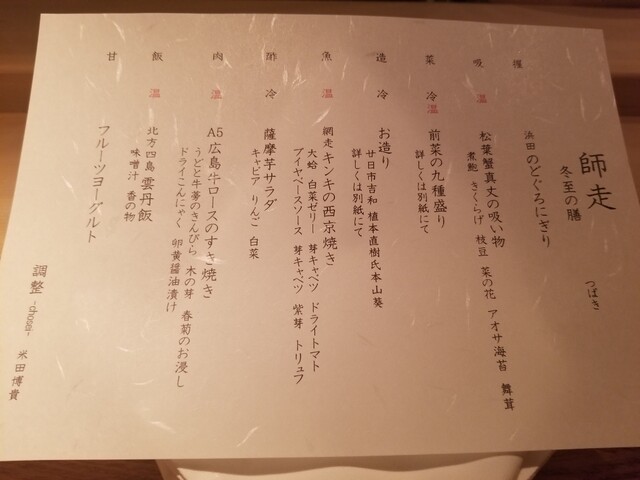 師走
冬至の膳
つばき
握
浜田 のどぐろにぎり
吸 温
松葉蟹真丈の吸い物
煮鮑 きくらげ 枝豆 菜の花 アオサ海苔 舞茸
菜 冷 温
前菜の九種盛り
詳しくは別紙にて
造 冷
お造り
廿日市吉和 植本直樹氏本山葵
詳しくは別紙にて
魚 温
網走キンキの西京焼き
大蛤 白菜ゼリー 芽キャベツ ドライトマト
ブイヤベースソース 芽キャベツ 紫芽 トリュフ
酢 冷
薩摩芋サラダ
キャビア りんご 白菜
肉 温
A5 広島牛ロースのすき焼き
うどと牛蒡のきんぴら 木の芽 春菊のお浸し
ドライこんにゃく 卵黄醤油漬け
飯 温
北方四島 雲丹飯
味噌汁 香の物
甘
フルーツヨーグルト
調整 -choei- 米田博貴